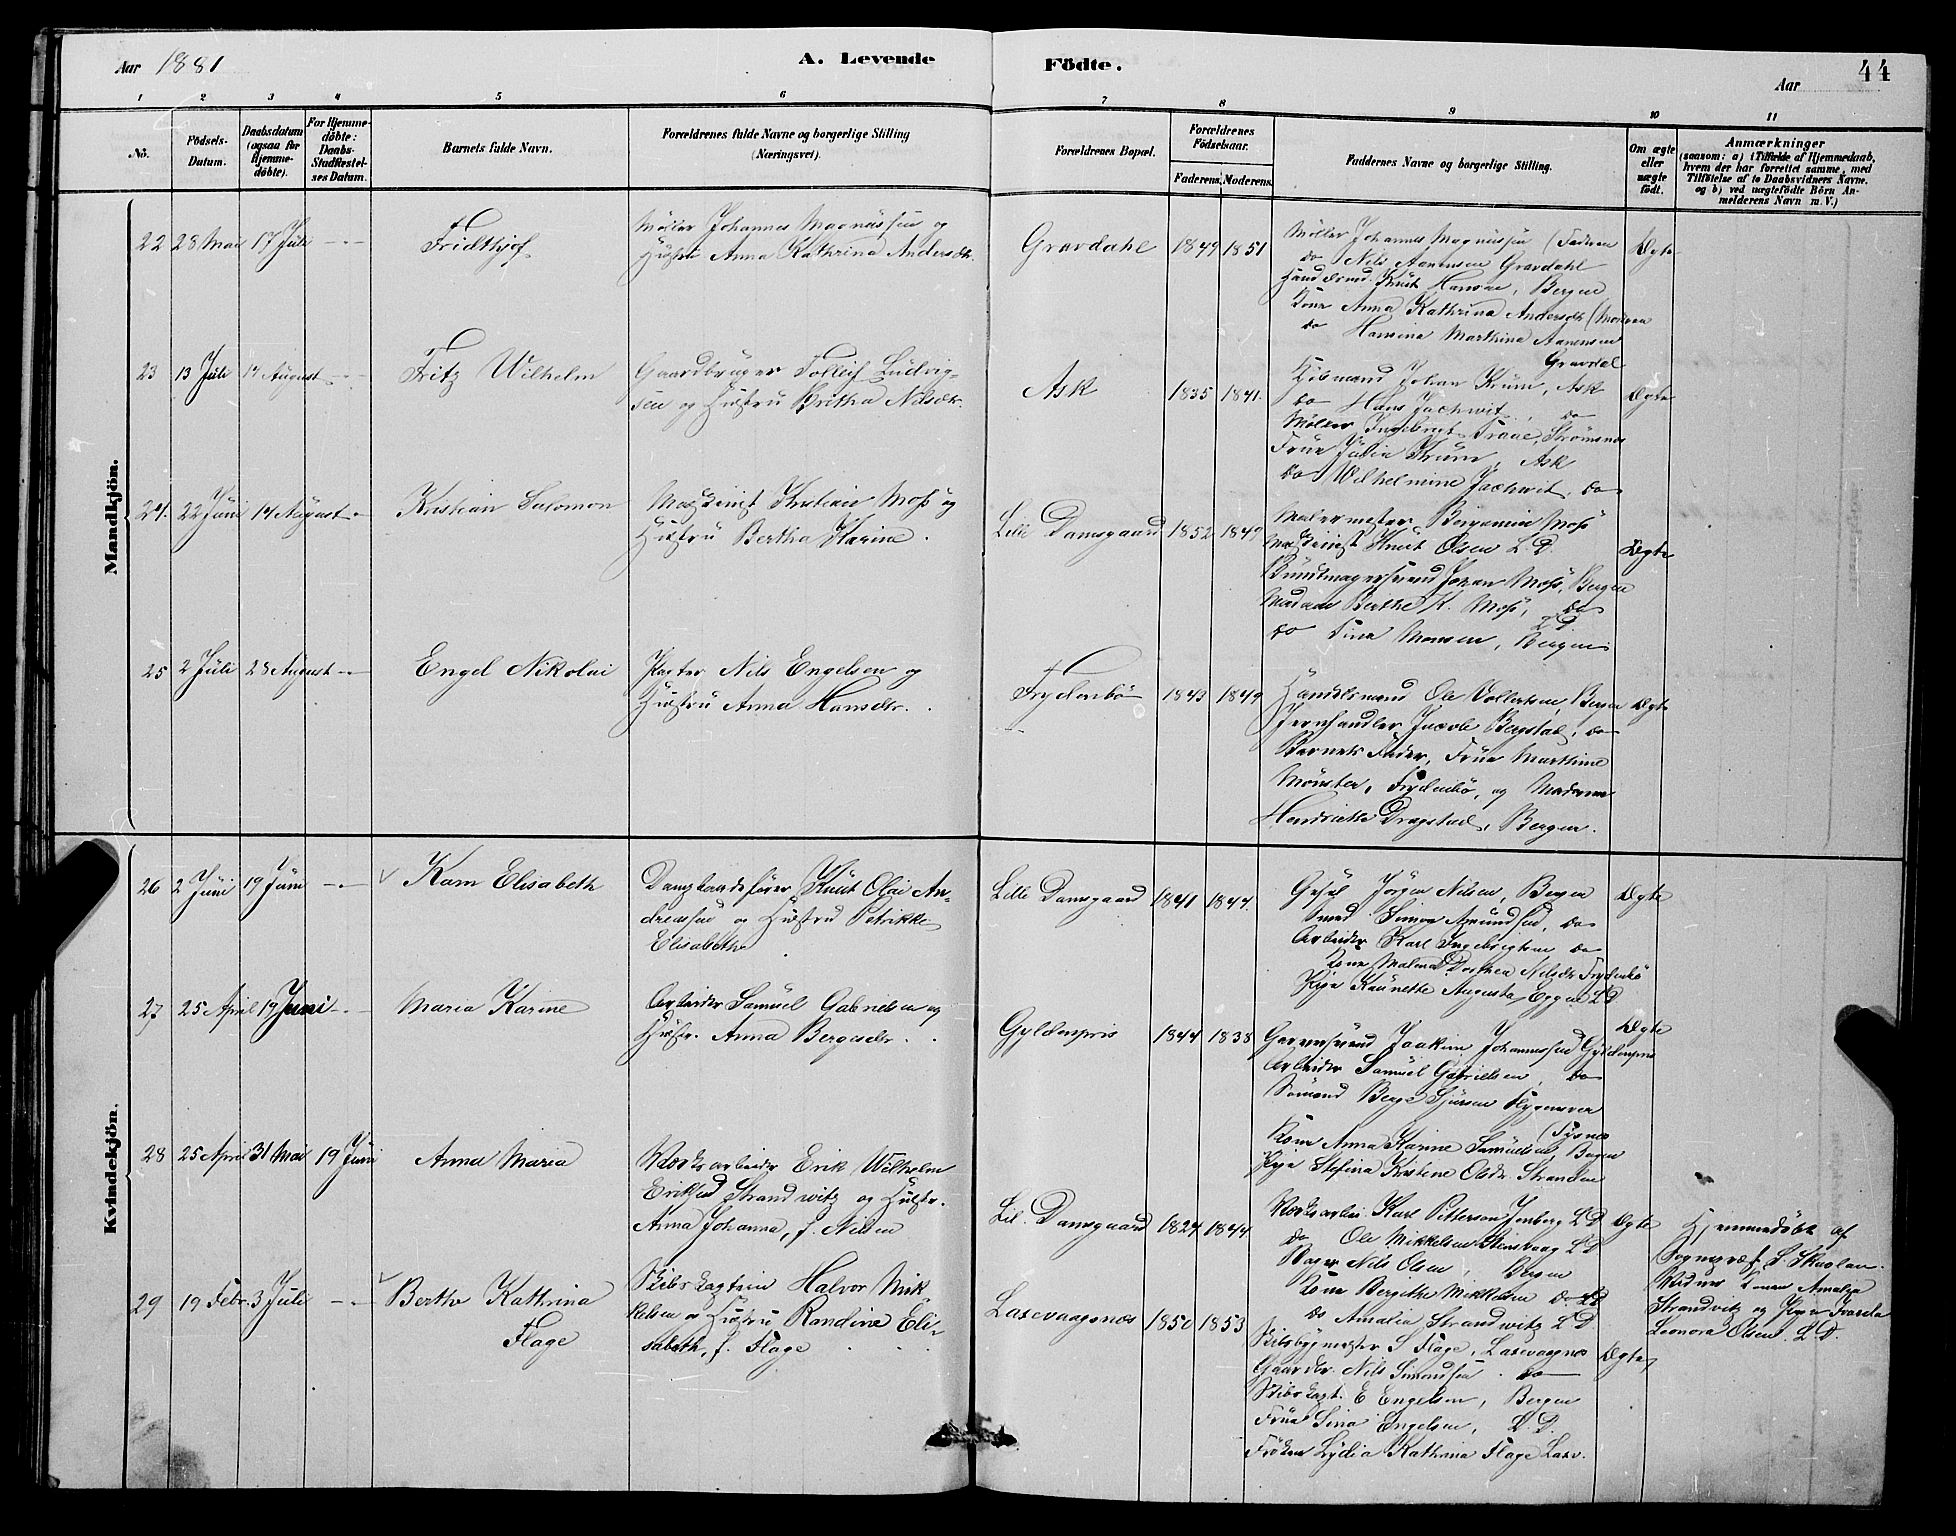 Aar 1881
A. Levende
Födte.
Aar
44
1 2 3 4 5 6 7 8 9 10 11
No.
Födsels-
Datum.
Daabsdatum
(ogsaa for
Hjemme-
döbte).
For Hjemme-
döbte:
Daabs-
Stadfæstel-
ses Datum.
Barnets fulde Navn.
Forældrenes fulde Navne og borgerlige Stilling
(Næringsvei).
Forældrenes Bopæl.
Forældrenes
Födselsaar.
Faderens. Moderens.
Faddernes Navne og borgerlige Stilling.
Om ægte
eller
uægte
födt.
Anmærkninger
(saasom: a) i Tilfælde af Hjemmedaab,
hvem der har forrettet samme, med
Tilföielse af to Daabsvidners Navne.
og b) ved uægtefödte Börn An-
melderens Navn m. V.)
Mandkjön.
22 28 Mai 17 Juli
Fridthjof
Møller Johannes Magnussen og
Hustru Anna Kathrina Andersdtr.
Gravdahl 1849 1851
Møller Johannes Magnussen (Faderen
do Nils Aanensen Gravdahl
Knut Hansen, Bergen
Kone Anna Kathrina Andersdtr (Moderen
do Hansina Marthina Aanensen
Gravdal
Ægte
23 13 Juli 14 August
Fritz Wilhelm
Gaardbruger Tolleif Ludvig-
sen og Hustru Britha Nilsdtr.
Ask 1835 1841.
Johan Krüm, Ask
do Hans Jachwit, do
Møller Ingebrigt Traae, Strømsnes
Frue Julia Krüm, Ask
do Wilhelmine Jachwit, do
Ægte
24. 22 Juni 14 August
Kristian Salomon
Maskinist Kristian Moss og
Hustru Bertha Karine.
Lille Damsgaard 1852 1849
Malermester Benjamin Moss
Maskinist Knut Olsen L. D.
Buntmagersvend Johan Moss, Bergen
Madam Berthe K. Moss, L D
do Sina Monsen, Bergen
Ægte
25 2 Juli 28 August
Engel Nikolai
Pagter Nils Engelsen og
Hustru Anna Hansdtr.
Frydenbö 1843 1849
Handelsmand Ole Vollertsen, Bergen
Jernhandler Jacob Bagstad, do
Barnets Fader, Frue Marthine
Mønster, Frydenbö, og Madame
Henriette Dragstad, Bergen.
Ægte
Kvindekjön.
26 2 Juni 19 Juni
Karn Elisabeth
Damplandsfører Knut Olai An-
dreassen og Hustru Petrikke
Elisabeth
Lille Damsgaard 1841 1844.
Jörgen Nilsen, Bergen
Smed Simon Amundsen, do
Arbeider Karl Ingebrigtsen do
Kone Malena Dorthea Nilsdtr Frydenbö
Pige Augusta Eggen L D
Ægte
27 25 April 19 Juni
Maria Karine
Arbeider Samuel Gabrielsen og
Hustr. Anna Bergesdtr.
Gyldenpris 1844 1838
Garversvend Joakim Johannessen Gyldenpris
Arbeider Samuel Gabrielsen, do
Sømand Berge Sjursen
(Tysnes
Kone Anna Karine Samuelsen, Bergen
Pige Stefina Kristine Olsdr. Stranden
Ægte
28 25 April 31 Mai 19 Juni
Anna Maria
Værksarbeider Erik Wilhelm
Eriksen Strandwitz og Hustr.
Anna Johanna, f. Nilsen
Lil. Damsgaard 1824 1844
Værksarbei. Karl Petterson L D
do Ole Mikkelsen L D
Bager Nils Olsen, Bergen
Kone Bergithe Mikkelsen L D
do Amalia Strandwitz L D
Ægte
Hjemmedøbt af
Sognepræst S. Skaolan.
Vidner Konen Amalia
Strandvitz og Pige
Leonora Olsen L D.
29 19 Febr. 3 Juli
Berthe Kathrina
Flage
Skibskaptein Halvor Mik-
kelsen og Hustru Randine Eli-
sabeth, f. Flage
Laxevaagsnæs 1850 1853
Skibsbygmester S Flage, Laxevaagnes
Gaardbr. Nils Simonsen do
Skibskapt. E Engelsen, Bergen
Frue Sina Engelsen, L D.
Frøken Lydia Kathrina Flage Laxv.
Ægte